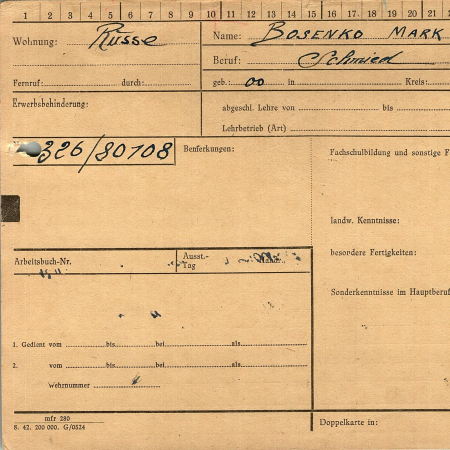 1 2 3 4 5 6 7 8 9 10 11 12 13 14 15 16 17 18 19 20 21
Wohnung: Russe
Name: BOSENKO MARK
Beruf: Schmied
Fernruf: durch:
geb.: 00 in Kreis:
Erwerbsbehinderung:
abgeschl. Lehre von bis
Lehrbetrieb (Art)
326/80108
Bemerkungen:
Fachschulbildung und sonstige F
landw. Kenntnisse:
besondere Fertigkeiten:
Sonderkenntnisse im Hauptberuf
Arbeitsbuch-Nr.
Ausst.-Tag
1. Gedient vom bis bei als
2. vom bis bei als
Wehrnummer
mfr 280
8. 42. 200 000. G/0524
Doppelkarte in: